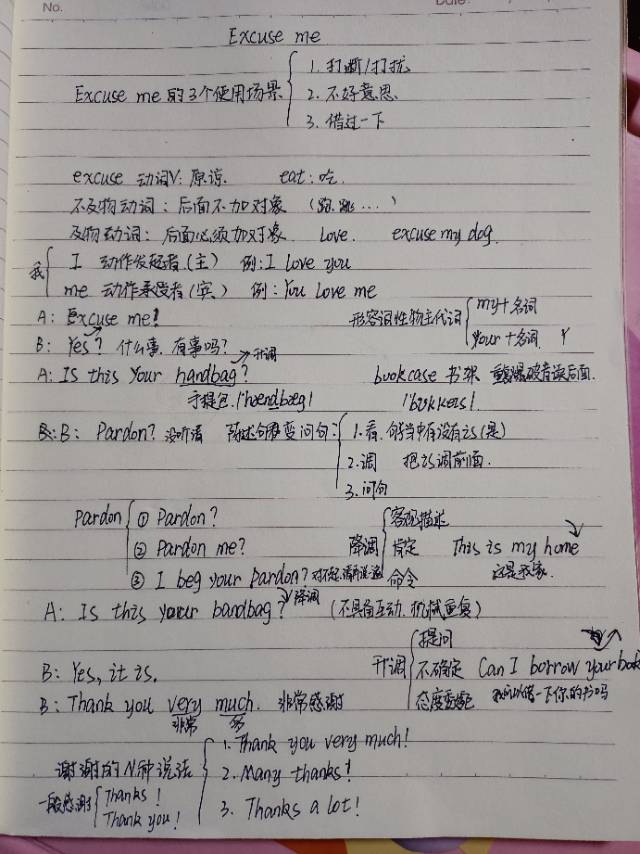 No.
Date.
Excuse me
Excuse me 的3个使用场景
1. 打断/打扰
2. 不好意思
3. 借过一下
excuse 动词V: 原谅. eat: 吃.
不及物动词: 后面不加对象 (跑、跳...)
及物动词: 后面必须加对象. Love. excuse my dog.
我
I 动作发起者.(主) 例: I love you
me 动作承受者(宾.) 例: You Love me
A: Excuse me!
形容词性物主代词
my+名词
your+名词
B: Yes? 什么事. 有事吗?
A: Is this your handbag? 升调
手提包. /'hændbæg/
bookcase 书架 重复爆破音读后面.
/'bʊkkeɪs/.
B: Pardon? 没听清 陈述句变问句:
1. 看. 句子当中有没有is(是)
2. 调 把is调前面.
3. 问句
Pardon
① Pardon?
② Pardon me?
③ I beg your pardon? 对不起.请再说一遍
降调
客观描述
肯定 This is my home
命令 这是我家.
A: Is this your bandbag? 降调 (不具有互动. 机械重复)
B: Yes, it is.
升调
提问
不确定 Can I borrow your book
态度委婉 我可以借一下你的书吗
B: Thank you very much. 非常感谢
非常 多
谢谢的N种说法
1. Thank you very much!
2. Many thanks!
3. Thanks a lot!
一般感谢
Thanks!
Thank you!